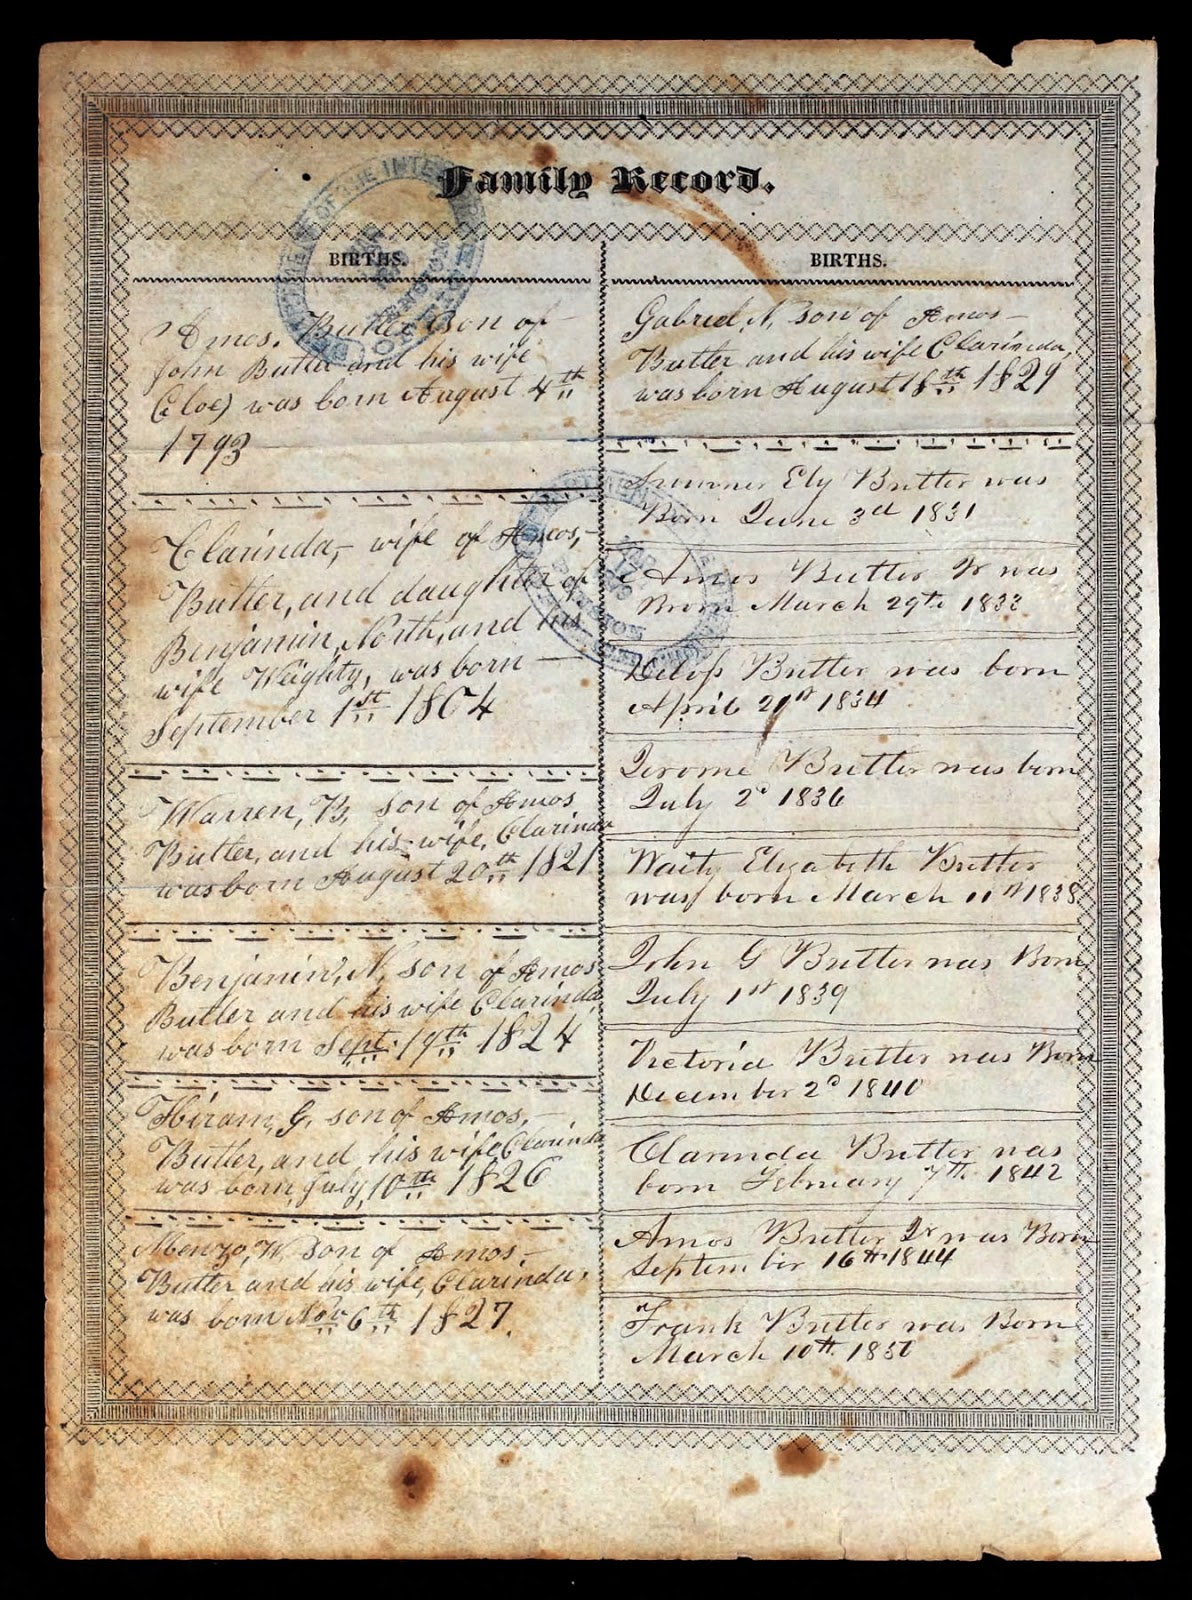 Family Record.
BIRTHS.
Amos, Butler Son of
John Butler and his wife
Cloe) was born August 4th
1793
Clarinda, wife of Amos,
Butler, and daughter of
Benjamin, North, and his
wife Weighty, was born
September 1st 1804
Warren, B, son of Amos
Butler, and his wife, Clarinda
was born August 20th 1821
Benjamin, N, son of Amos
Butler and his wife Clarinda,
was born Sept. 19th 1824
Hiram, G. son of Amos,
Butler, and his wife Clarinda
was born, July, 10th 1826
Menzo, W. Son of Amos
Butler and his wife, Clarinda,
was born Nov 6th 1827.
BIRTHS.
Gabriel, N, Son of Amos
Butler and his wife Clarinda,
was born August 18th 1829
Sumner Ely Butler was
Born June 3d 1831
Amos Butler Jr was
Born March 29th 1833
Delos Butler was born
April 21st 1834
Jerome Butler was born
July 2d 1836
Waity Elizabeth Butler
was born March 11th 1838
John G Butler was Born
July 1st 1839
Victoria Butler was Born
December 2d 1840
Clarinda Butler was
born February 7th 1842
Amos Butler Jr was Born
September 16th 1844
Frank Butler was Born
March 10th 1850